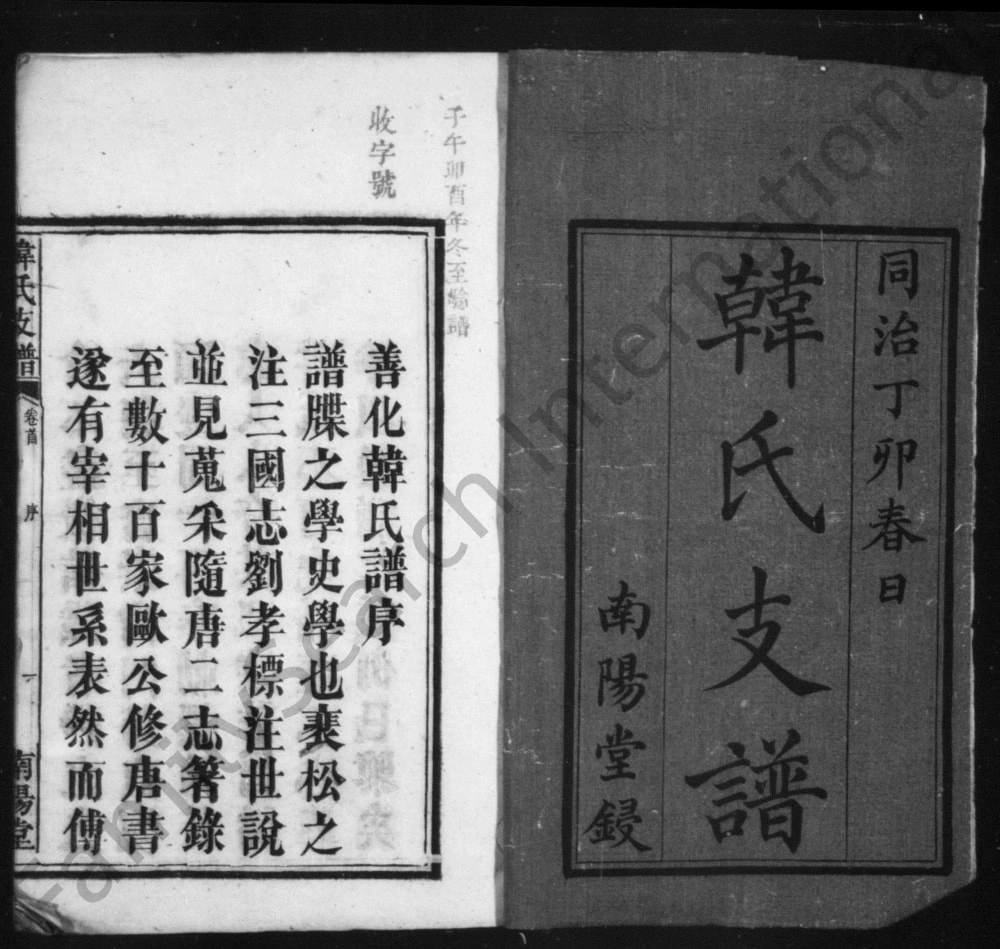 同治丁卯春日
韓氏支譜
南陽堂鋟
子午卯酉年冬至驗譜
收字號
善化韓氏譜序
譜牒之學史學也裴松之
注三國志劉孝標注世說
並見蒐采隨唐二志箸錄
至數十百家歐公修唐書
遂有宰相世系表然而傅
韓氏支譜
卷首
序
一
南陽堂
FamilySearch International